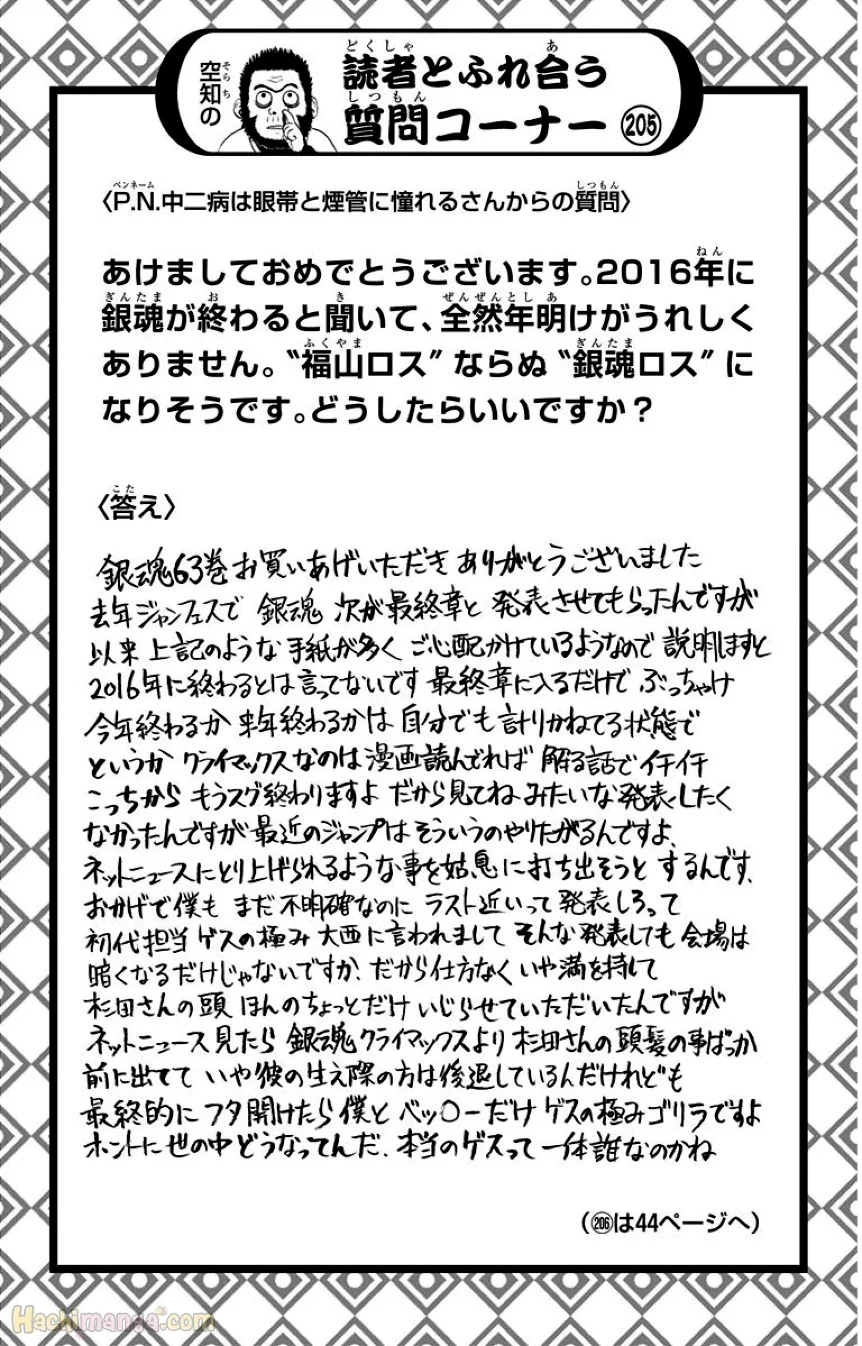 空知の
読者とふれ合う
質問コーナー 205
〈P.N.中二病は眼帯と煙管に憧れるさんからの質問〉
あけましておめでとうございます。2016年に
銀魂が終わると聞いて、全然年明けがうれしく
ありません。〝福山ロス〟ならぬ〝銀魂ロス〟に
なりそうです。どうしたらいいですか？
〈答え〉
銀魂63巻お買いあげいただき ありがとうございました
去年ジャンフェスで 銀魂 次が最終章と 発表させてもらったんですが
以来 上記のような 手紙が多く ご心配かけているようなので 説明しますと
2016年に終わるとは言ってないです 最終章に入るだけで ぶっちゃけ
今年終わるか 来年終わるかは 自分でも計りかねてる状態で
というか クライマックスなのは漫画読んでれば 解る話でイチイチ
こっちから もうスグ終わりますよ だから見てね みたいな発表したく
なかったんですが 最近のジャンプは そういうのやりたがるんですよ、
ネットニュースにとり上げられるような事を姑息に打ち出そうと するんです、
おかげで僕も まだ不明確なのに ラスト近いって発表しろって
初代担当 ゲスの極み 大西に言われまして そんな発表しても 会場は
暗くなるだけじゃないですか、だから仕方なく いや満を持して
杉田さんの頭 ほんのちょっとだけ いじらせていただいたんですが
ネットニュース見たら 銀魂クライマックスより 杉田さんの頭髪の事ばっか
前に出てて いや彼の生え際の方は後退しているんだけれども
最終的に フタ開けたら僕と ベッ〇ーだけ ゲスの極みゴリラですよ
ホントに 世の中どうなってんだ、本当のゲスって 一体誰なのかね
（206は44ページへ）
Hachimanga.com